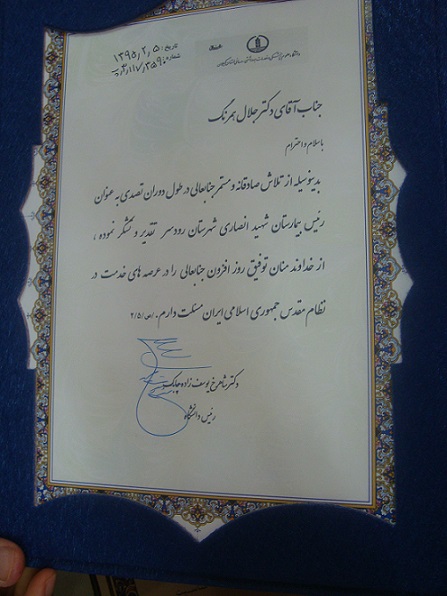 تاریخ: ۱۳۹۵٫۲٫۵
شماره:
جناب آقای دکتر جلال همرنگ
با سلام و احترام
بدینوسیله از تلاش صادقانه و مستمر جنابعالی در طول دوران تصدی به عنوان
رئیس بیمارستان شهید انصاری شهرستان رودسر تقدیر و تشکر نموده ،
از خداوند منان توفیق روز افزون جنابعالی را در عرصه های خدمت در
نظام مقدس جمهوری اسلامی ایران مسئلت دارم. /ص/۲/۵
دکتر شاهرخ یوسف زاده چابک
رئیس دانشگاه